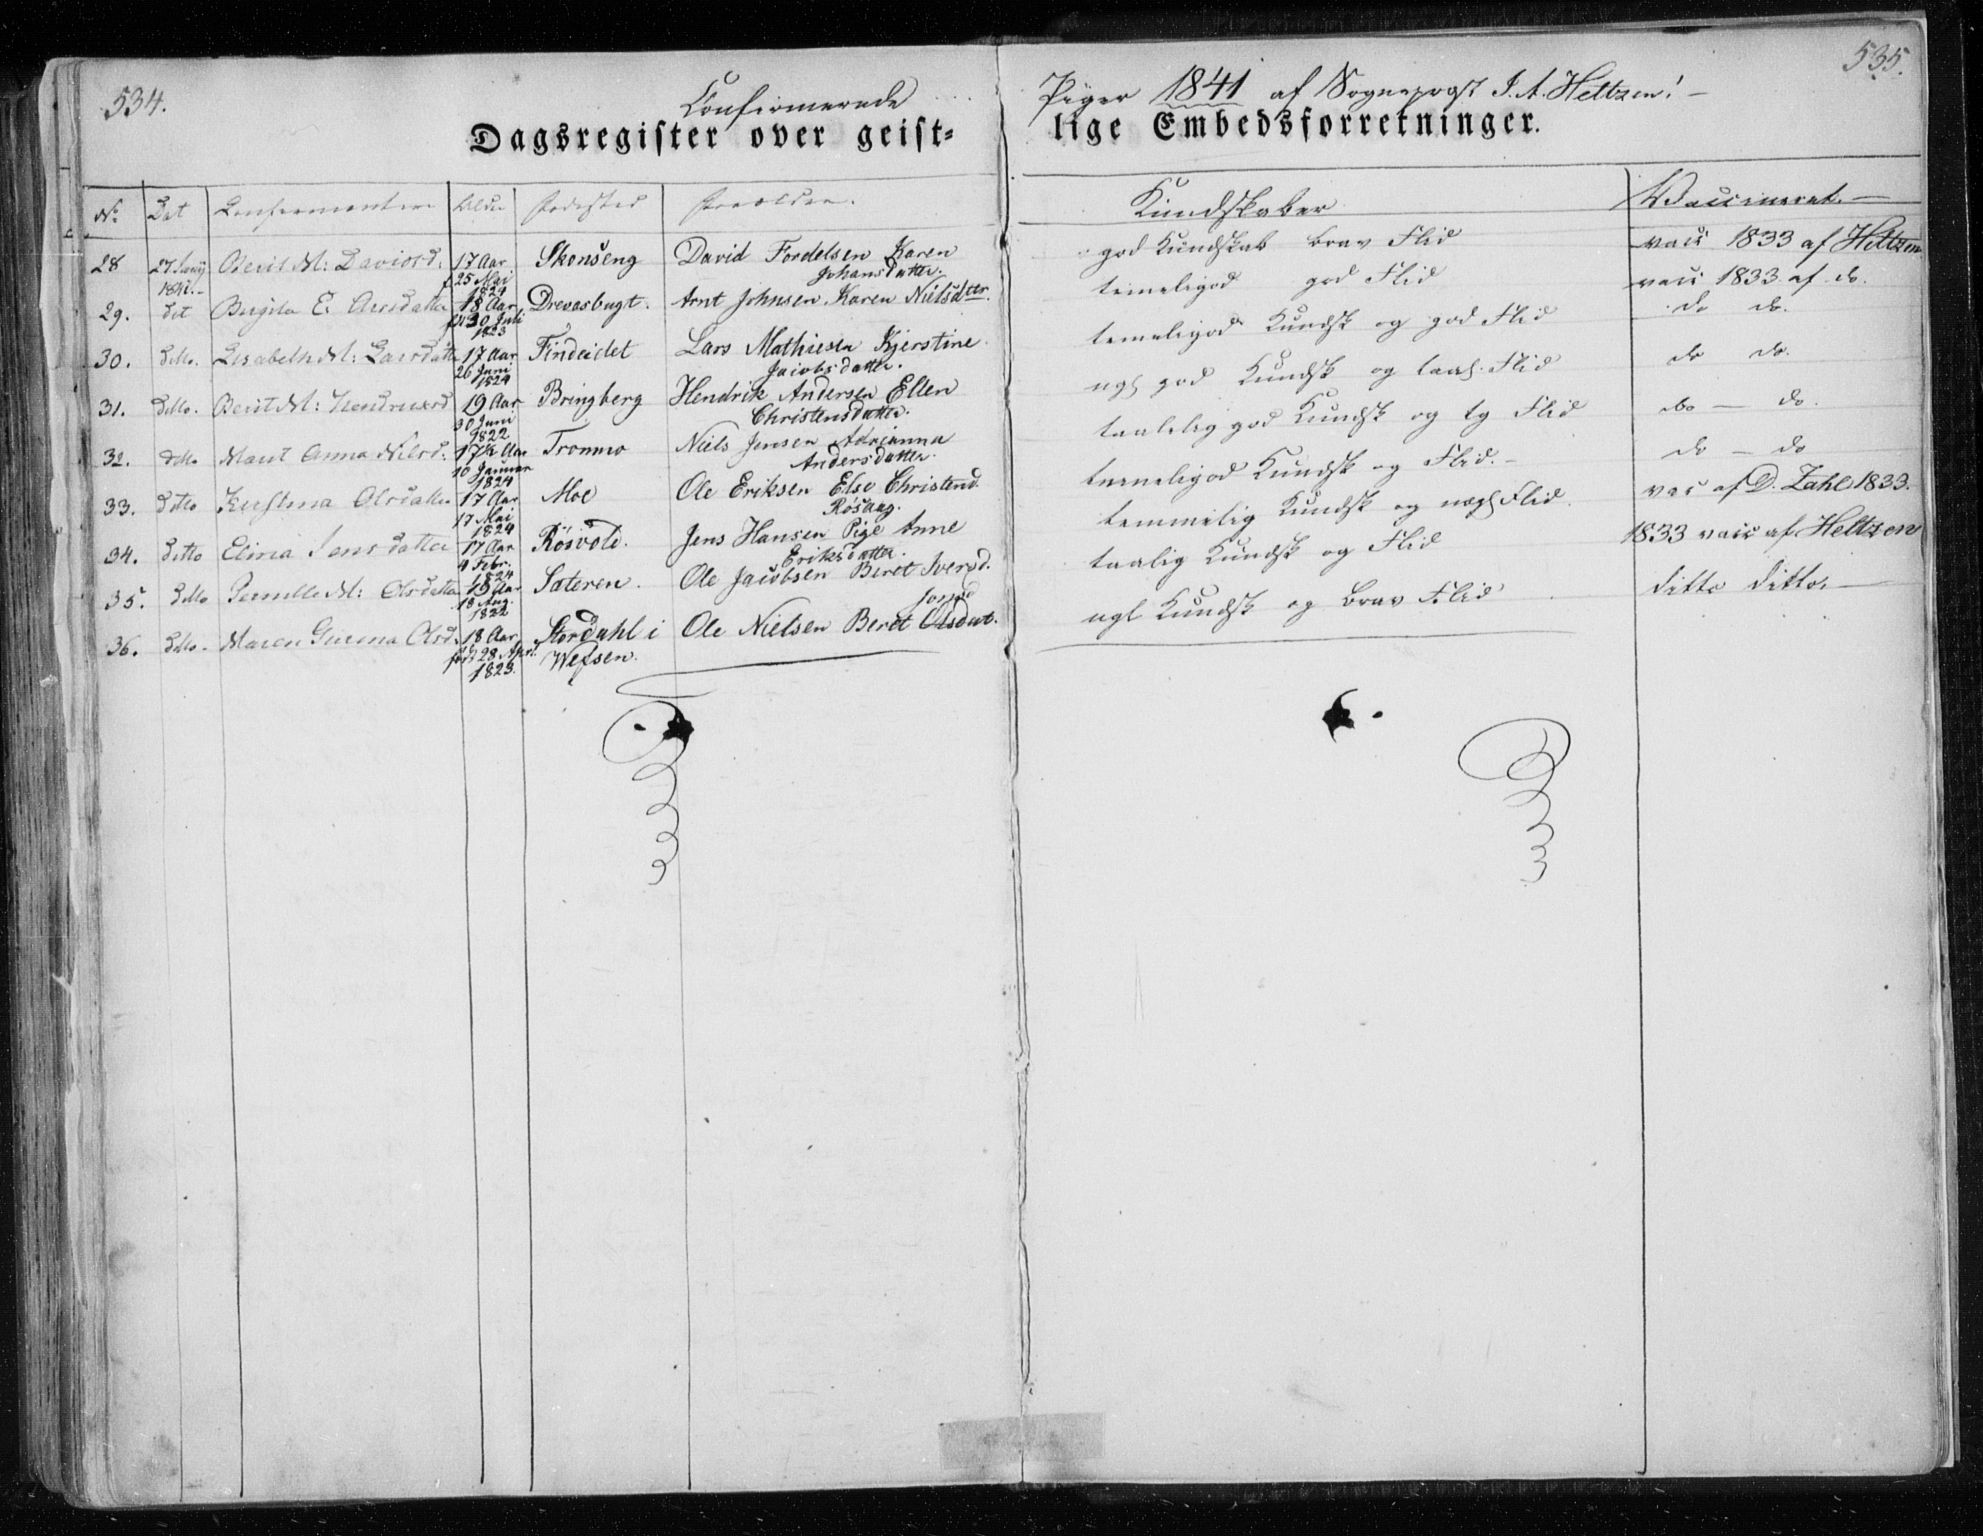 534.
Confirmerede
Dagsregister over geist=
No. Dat Confirmanter Alder Födested Forældre.
28 27 Junij 1841.- Berit M: Davidsd. 17 Aar f 25 Mai 1824 Skonseng David Fordelsen Karen Johansdatter.
29. Dit E: Arnsdatter 18 Aar 30 Juli 1823 Drevasbugt. Arnt Johnsen Karen Nielsdtr.
30. Ditto. Elisabeth M: Larsdatter 17 Aar 26 Juni 1824 Findeidet Lars Mathiesen Kjerstine Jacobsdatter.
31. Ditto. Berit M: Hendriksd 19 Aar 30 Juni 1822 Bringberg Hendrik Andersen Ellen Christensdatter.
32. ditto Marit Anna Nilsd. 17½ Aar 10 Januar 1824 Tronmo Niels Jensen Adrianna Andersdatter.
33. Ditto Olsdatter 17 Aar 17 Mai 1824 Moe Ole Eriksen Else Christensd. Rösaag.
34. Ditto Jensdatter 17 Aar 4 Febr. 1824 Rösvold. Jens Hansen Pige Anne Eriksdatter.
35. Ditto Pernille M: Olsdatter 18 Aug. 1822 Sateren. Ole Jacobsen Beret Iversd.
36. Ditto. Maren Olsd. 18 Aar 28 April 1823. Stordahl i Wefsen. Ole Nielsen Beret Olsdat. Jonsd
535.
Piger 1841 af Sogneprest I. A. Heltzen! -
lige Embedsforretninger.
Kundskaber Vaccineret.-
god Kundskab brav Flid vacc 1833 af Heltzen
temeligod god Flid vacc 1833 af do.
temeligod Kundsk og god Flid do do.
ngl god Kundsk og taal. Flid do do.
taalelig god Kundsk og tg Flid do - do.
temeligod Kundsk og Flid.- do - do
temmelig Kundsk og nogl Flid. vac af D. Zahl 1833.
taalig Kundsk og Flid 1833 vacc af Heltzen
ngl Kundsk og brav Flid ditto ditto.-